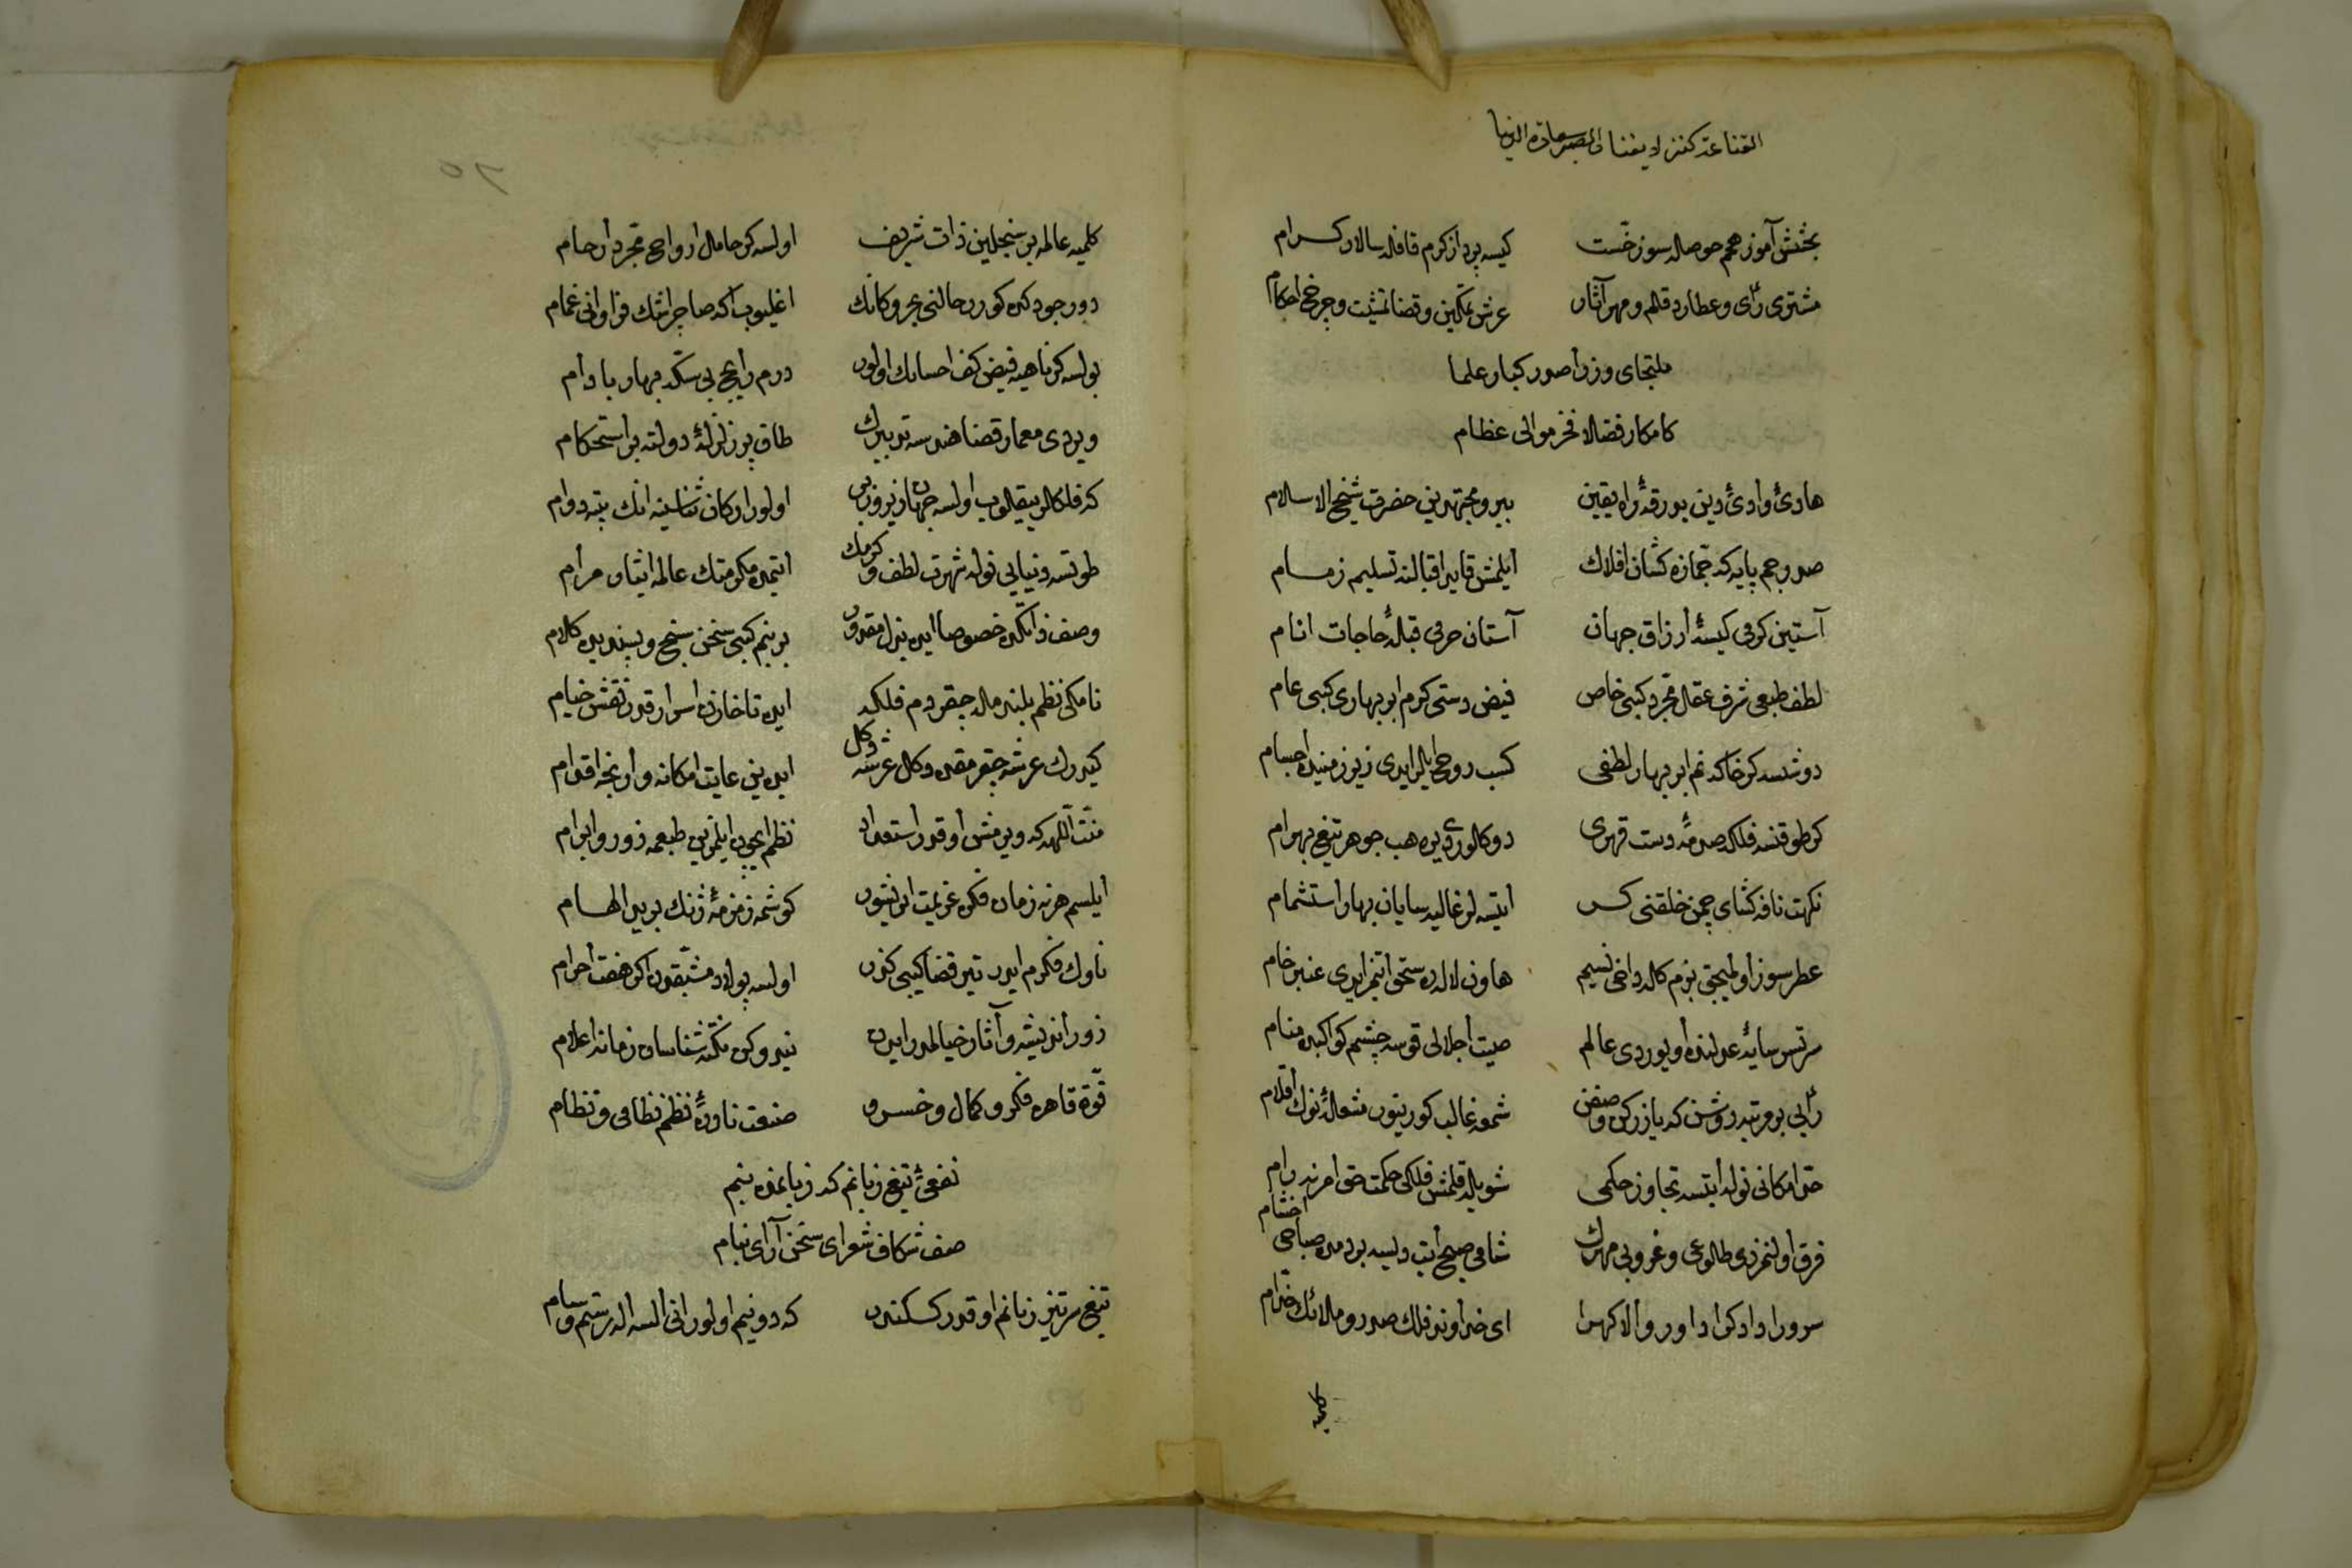 القناعة كنز لا يفنا
بخشش آموز همم حوصله سوز خست كيسه پرداز كرم قافله سالار كرام
مشترى رأى و عطارد قلم و مهر آثار عرش تمكين و قضا تمشيت و چرخ احكام
ملتجاى وزرا صدر كبار علما
كامكار فضلا فخر موالى عظام
هادئ وادئ دين بدرقهٔ راه يقين پيرو مجتهدين حضرت شيخ الاسلام
صدر جم پايه كه جمازه كشان افلاك ايلمش قايد اقبالنه تسليم زمام
آستين كرمى كيسهٔ ارزاق جهان آستان حرمى قبلهٔ حاجات انام
لطف طبعى شرف عقل مجرد كبى خاص فيض دستى كرم ابر بهارى كبى عام
دوشسه كر خاكه نم ابر بهار لطفى كسب روح ايلر ايدى زير زمينده اجسام
كر طوقنسه فلكه صدمهٔ دست قهرى دوكلوردى يره هب جوهر تيغ بهرام
نكهت نافه كشاى چمن خلقنى كر ايتسه لر غاليه سايان بهار استشمام
عطر سوز اولميجق بزم كله داخى نسيم هاون لالهده سحق ايتمز ايدى عنبر خام
سرتسر سايهٔ عدلنده اويوردى عالم صيت اجلالى قوسه چشم كواكبده منام
رأيى بر مرتبه روشن كه يازركن وصفن شمعه غالب كورينور شعلهٔ نوك اقلام
حد امكانى نوله ايتسه تجاوز حكمى شويله قلمش فلكى حكمت حق امرينه رام
فرق اولنمزدى طلوعى و غروبى مهرك شامى صبح ايت ديسه بر دمده صباحى اخشام
سرورا دادكرا داور والا كهرا اى خداوند فلك صدر و ملائك خدام
كلميه
كلميه عالمه بر سنجلين ذات شريف اولسه كر حامل ارواح مجرد ارحام
دور جودكده كورر حالنى بحر و كانك اغليوب اكه صاچر اشك فراوانى غمام
بولسه كر ماهيه فيض كف احسانك اولور درم رايج بى سكه بهار بادام
ويردى معمار قضا هندسه تدبيرك طاق پر زلزلهٔ دولته بر استحكام
طوتسه دنيايى نوله شهرت لطف و كرمك ايتمده مكرمتك عالمه ايثار مرام
وصف ذاتكده خصوصا ايده بذل مقدور بر بنم كبى سخن سنج و پسنديده كلام
كيدرك عرشه چقر مقده دكل عرشه دكل
منت اللهه كه ويرمش او قدر استعداد نظم ايچون ايلمزين طبعمه زور و ابرام
ايلسم هر نه زمان فكره عزيمت ايريشور كوشمه زمزمهٔ زنك بريد الهام
ناوك فكرم ايدر تير قضا كبى كذر اولسه پولاد مشبقدن اكر هفت اجرام
زور انديشه و آثار خيالمدر ايدن نيدوكن نكته شناسان زمانه اعلام
قوة قاهره فكر و كمال و خسرو صنعت نادرهٔ نظم نظامى و نظام
نفعئ تيغ زبانم كه زبانمده بنم
صف شكاف شعراى سخن آراى نيام
تيغ سرتيز زبانم او قدر كسكندر كه دونيم اولور انى السه اله رستم و سام